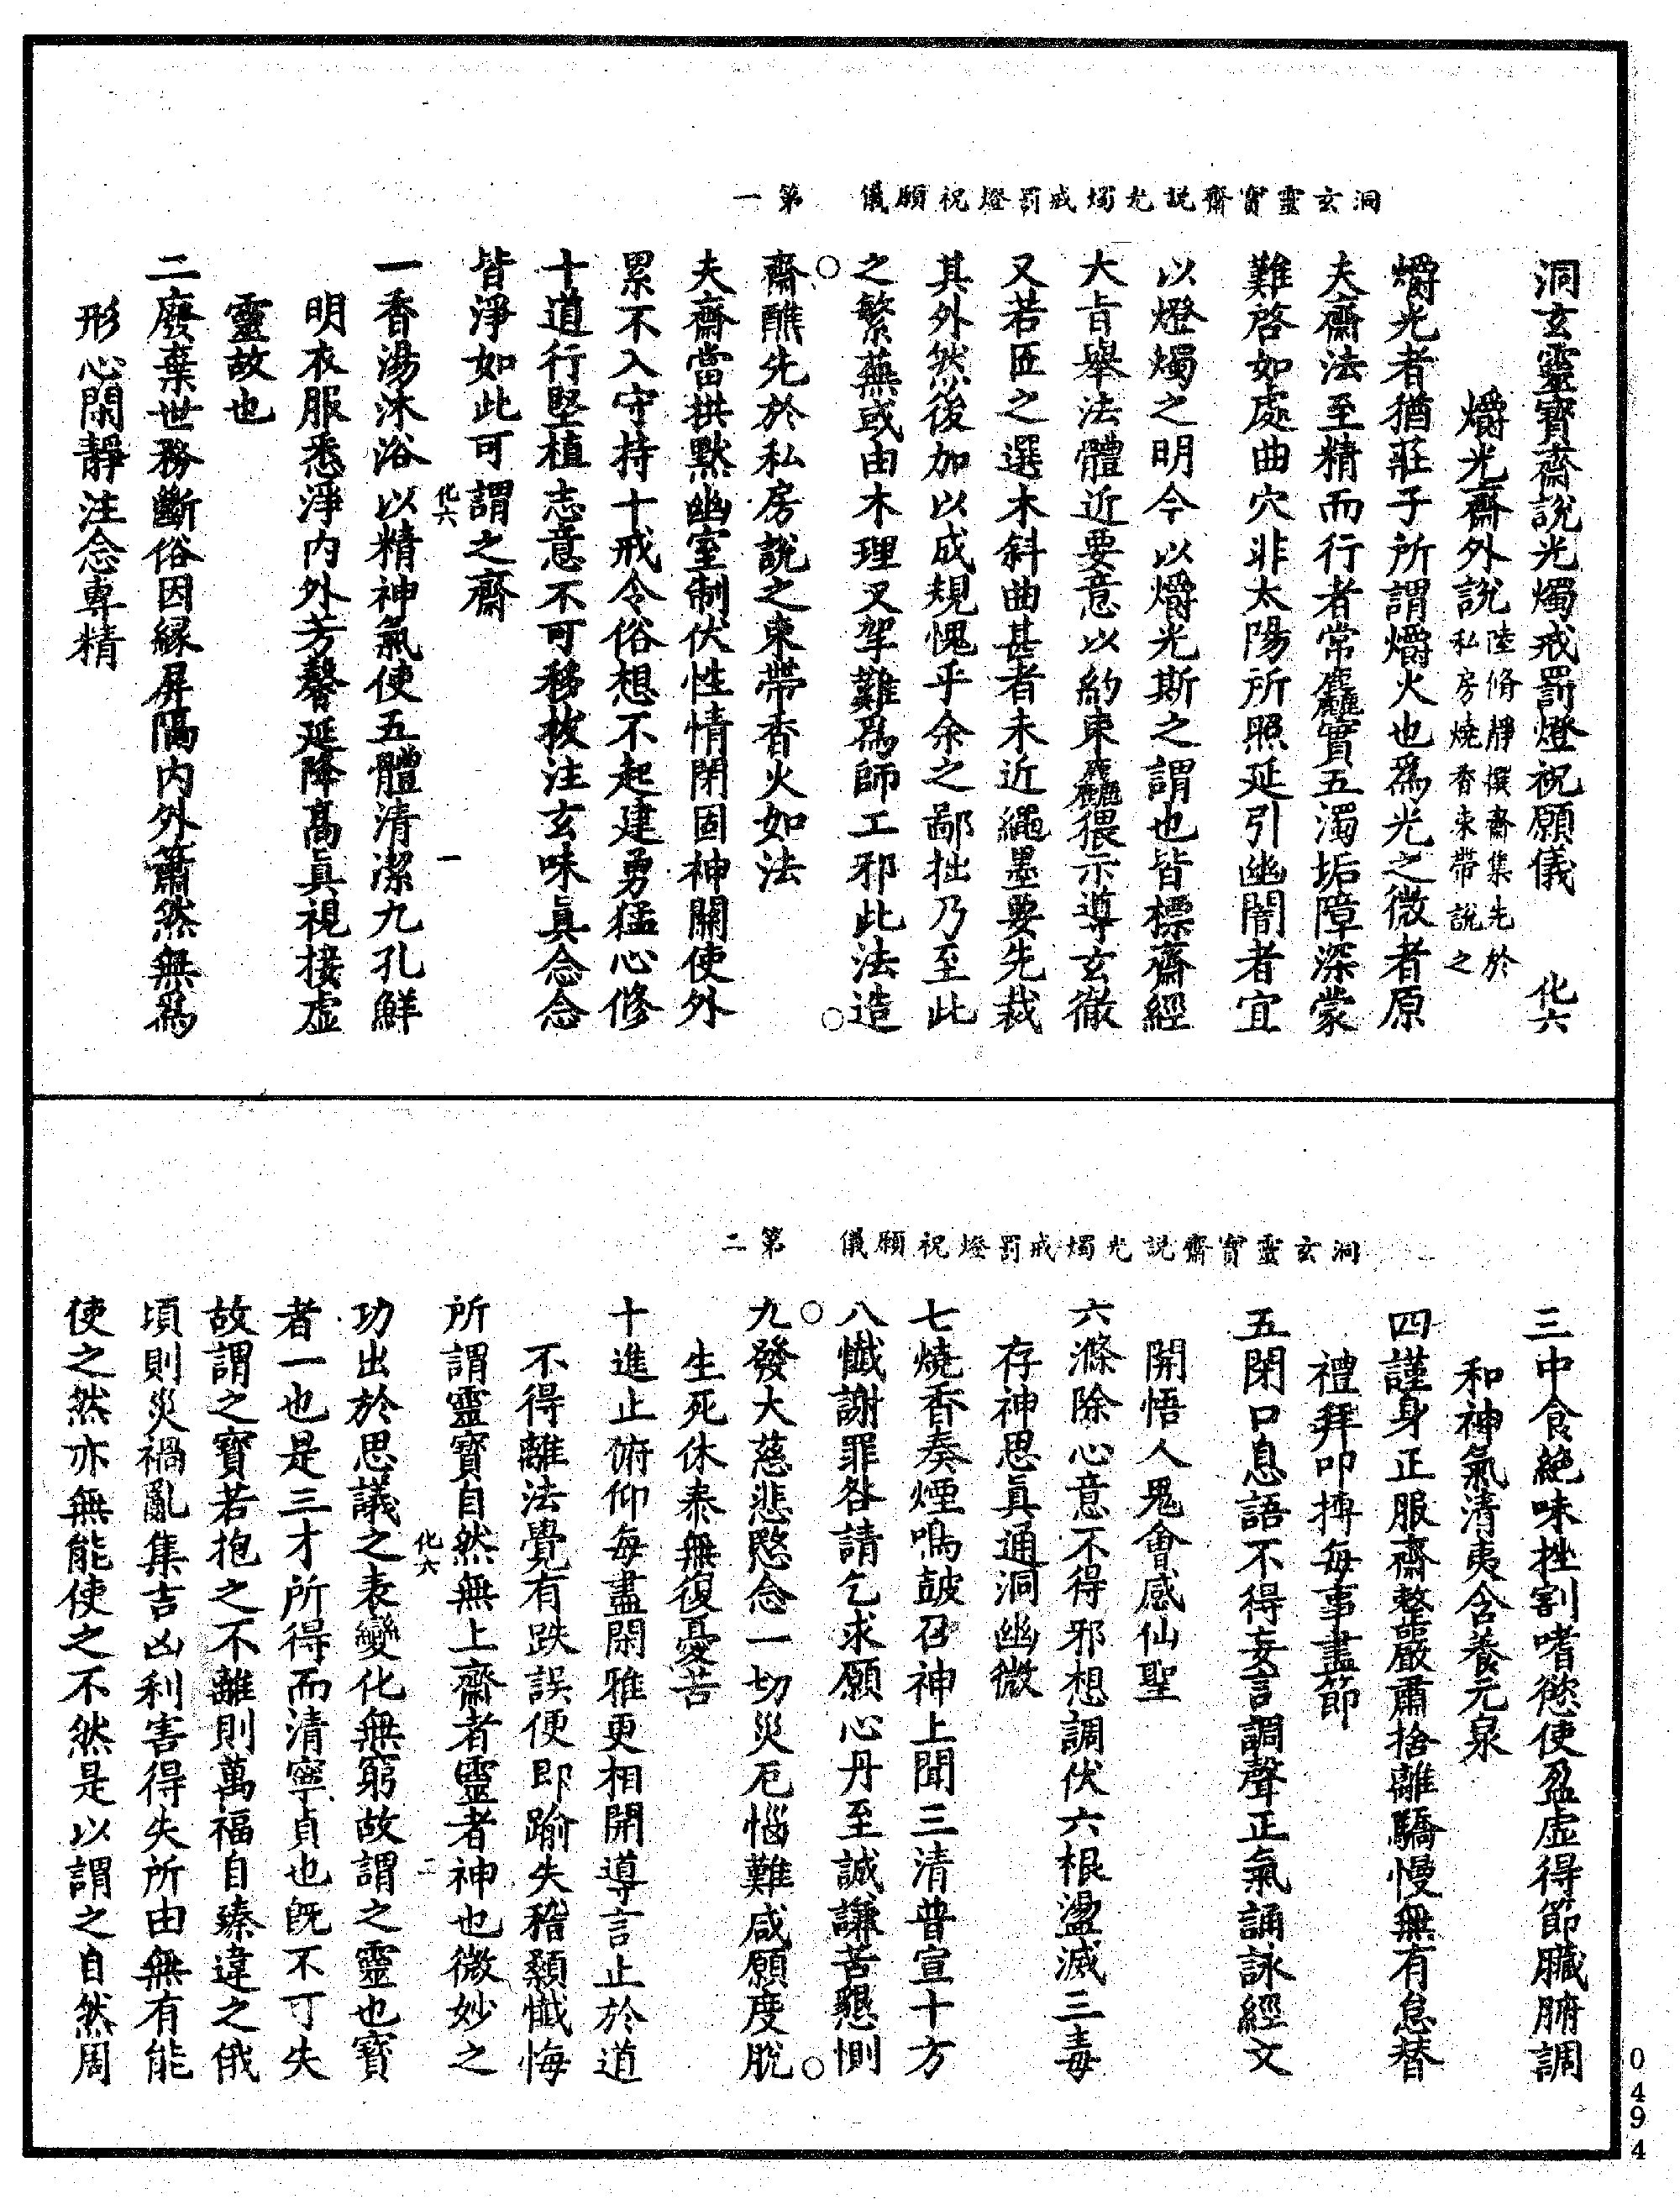 洞玄靈寶齋說光燭戒罰燈祝願儀　第一
洞玄靈寶齋說光燭戒罰燈祝願儀　化六
爝光齋外說陸脩靜撰齋集先於私房燒香束帶說之
爝光者猶莊子所謂爝火也爲光之微者原
夫齋法至精而行者常麤實五濁垢障深蒙
難啓如處曲穴非太陽所照延引幽闇者宜
以燈燭之明今以爝光斯之謂也皆標齋經
大旨舉法體近要意以約束麤猥示導玄徹
又若匠之選木斜曲甚者未近繩墨要先裁
其外然後加以成規愧乎余之鄙拙乃至此
之繁蕪或由木理叉牙難爲師工邪此法造
齋醮先於私房說之束帶香火如法
夫齋當拱默幽室制伏性情閉固神關使外
累不入守持十戒令俗想不起建勇猛心修
十道行堅植志意不可移拔注玄味真念念
皆淨如此可謂之齋
化六　一
一香湯沐浴以精神氣使五體清潔九孔鮮
明衣服悉淨內外芳馨延降高真視接虛
靈故也
二廢棄世務斷俗因緣屏隔內外蕭然無爲
形心閑靜注念專精
洞玄靈寶齋說光燭戒罰燈祝願儀　第二
三中食絕味挫割嗜慾使盈虛得節臟腑調
和神氣清夷含養元泉
四謹身正服齋整嚴肅捨離驕慢無有怠替
禮拜叩搏每事盡節
五閉口息語不得妄言調聲正氣誦詠經文
開悟人鬼會感仙聖
六滌除心意不得邪想調伏六根盪滅三毒
存神思真通洞幽微
七燒香奏煙鳴鼓召神上聞三清普宣十方
八懺謝罪咎請乞求願心丹至誠謙苦懇惻
九發大慈悲愍念一切災厄惱難咸願度脫
生死休泰無復憂苦
十進止俯仰每盡閑雅更相開導言止於道
不得離法覺有跌誤便即踰失稽顙懺悔
所謂靈寶自然無上齋者靈者神也微妙之
化六　二
功出於思議之表變化無窮故謂之靈也寶
者一也是三才所得而清寧貞也旣不可失
故謂之寶若抱之不離則萬福自臻違之俄
頃則災禍亂集吉凶利害得失所由無有能
使之然亦無能使之不然是以謂之自然周
0494